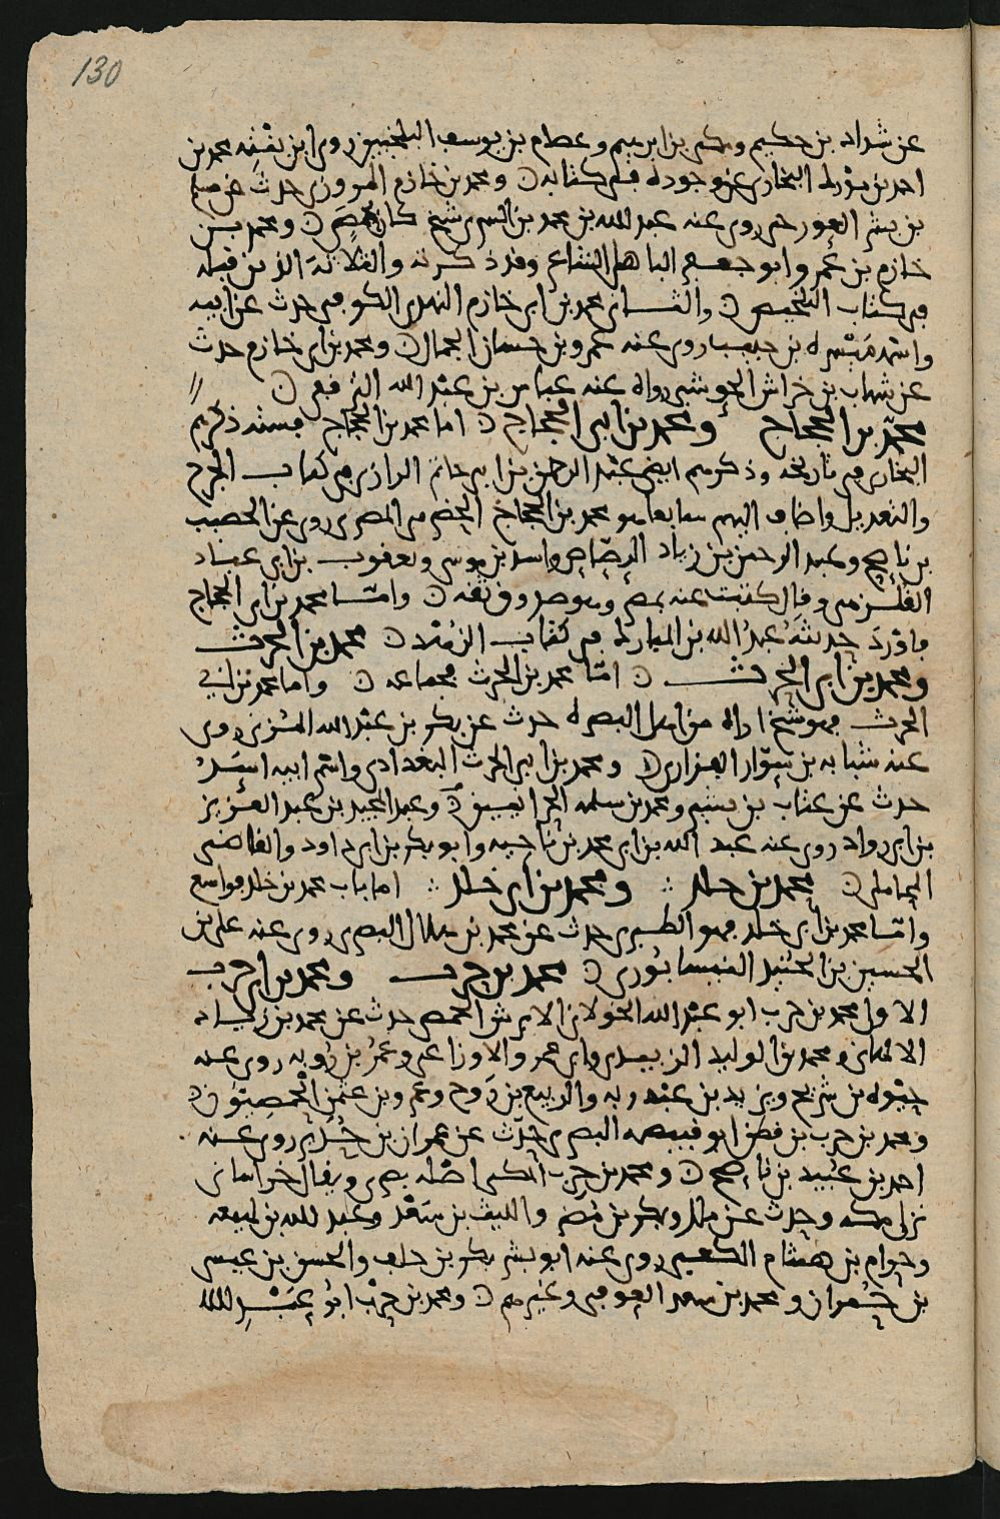 130
عن شداد بن حكيم ومكي بن ابرهيم وعصام بن يوسف البلخيين روى ابن ابنه محمد بن
احمد بن البخاري عن وجوده في كتابه ومحمد بن خازم المروزي حدث عن
بن بشر روى عنه عبد الله بن محمد بن السري شيخ كان بمصر ومحمد بن
خازم بن عمرو ابو جعفر الباهلي الشاعر وقد ذكرته والثلاثة الذين قبله
في كتاب التلخيص والثاني محمد بن ابي خازم النهدي الكوفي حدث عن ابيه
واسمه ميسرة بن حبيب روى عنه عمرو بن حسان الجمال ومحمد بن ابي خازم حدث
عن شهاب بن خراش الحوشبي رواه عنه عباس بن عبد الله الترقفي
محمد بن الحجاج ومحمد بن ابي الحجاج اما محمد بن الحجاج فستة ذكرهم
البخاري في تاريخه وذكرهم ايضا عبد الرحمن بن ابي حاتم الرازي في كتاب الجرح
والتعديل واضاف اليهم سابعا هو محمد بن الحجاج الحضرمي المصري روى عن الخصيب
بن ناصح وعبد الرحمن بن زياد الرصاصي واسد بن موسى ويعقوب بن ابي عباد
القلزمي وقال كتبت عنه بمصر وهو صدوق ثقة واما محمد بن ابي الحجاج
فاورد حديثه عبد الله بن المبارك في كتاب الزهد محمد بن الحرث
ومحمد بن ابي الحرث اما محمد بن الحرث فجماعة واما محمد بن ابي
الحرث فهو شيخ اراه من اهل البصرة حدث عن بكر بن عبد الله المزني روى
عنه شبابة بن سوار الفزاري ومحمد بن ابي الحرث البغدادي واسم ابيه اسد
حدث عن عتاب بن بشير ومحمد بن سلمه الحرانيين وعبد المجيد بن عبد العزيز
بن ابي رواد روى عنه عبد الله بن ابي محمد بن ناجيه وابو بكر بن ابي داود والقاضي
المحاملي محمد بن خلد ومحمد بن ابي خلد اما باب محمد بن خلد فواسع
واما محمد بن ابي خلد فهو الطبري حدث عن محمد بن بلال البصري روى عنه علي بن
الحسين بن الجنيد النيسابوري محمد بن حرب ومحمد بن ابي حرب
الاول محمد بن حرب ابو عبد الله الخولاني الابرش الحمصي حدث عن محمد بن زياد
الالهاني ومحمد بن الوليد الزبيدي والاوزاعي وعمر بن روبه روى عنه
حيوه بن شريح ويزيد بن عبد ربه والربيع بن روح وعمرو بن عثمن الحمصيون
ومحمد بن حرب بن قطن ابو قبيصه البصري حدث عن عمران بن حدير روى عنه
احمد بن عبيد بن ناصح ومحمد بن حرب المكي اصله بصري ويقال خراساني
نزل مكه وحدث عن ملك وبكر بن مضر والليث بن سعد وعبد الله بن لهيعه
وحرام بن هشام الكعبي روى عنه ابو بشر بكر بن خلف والحسن بن عيسى
بن حمران ومحمد بن سعد العوفي وغيرهم ومحمد بن حرب ابو عبد الله